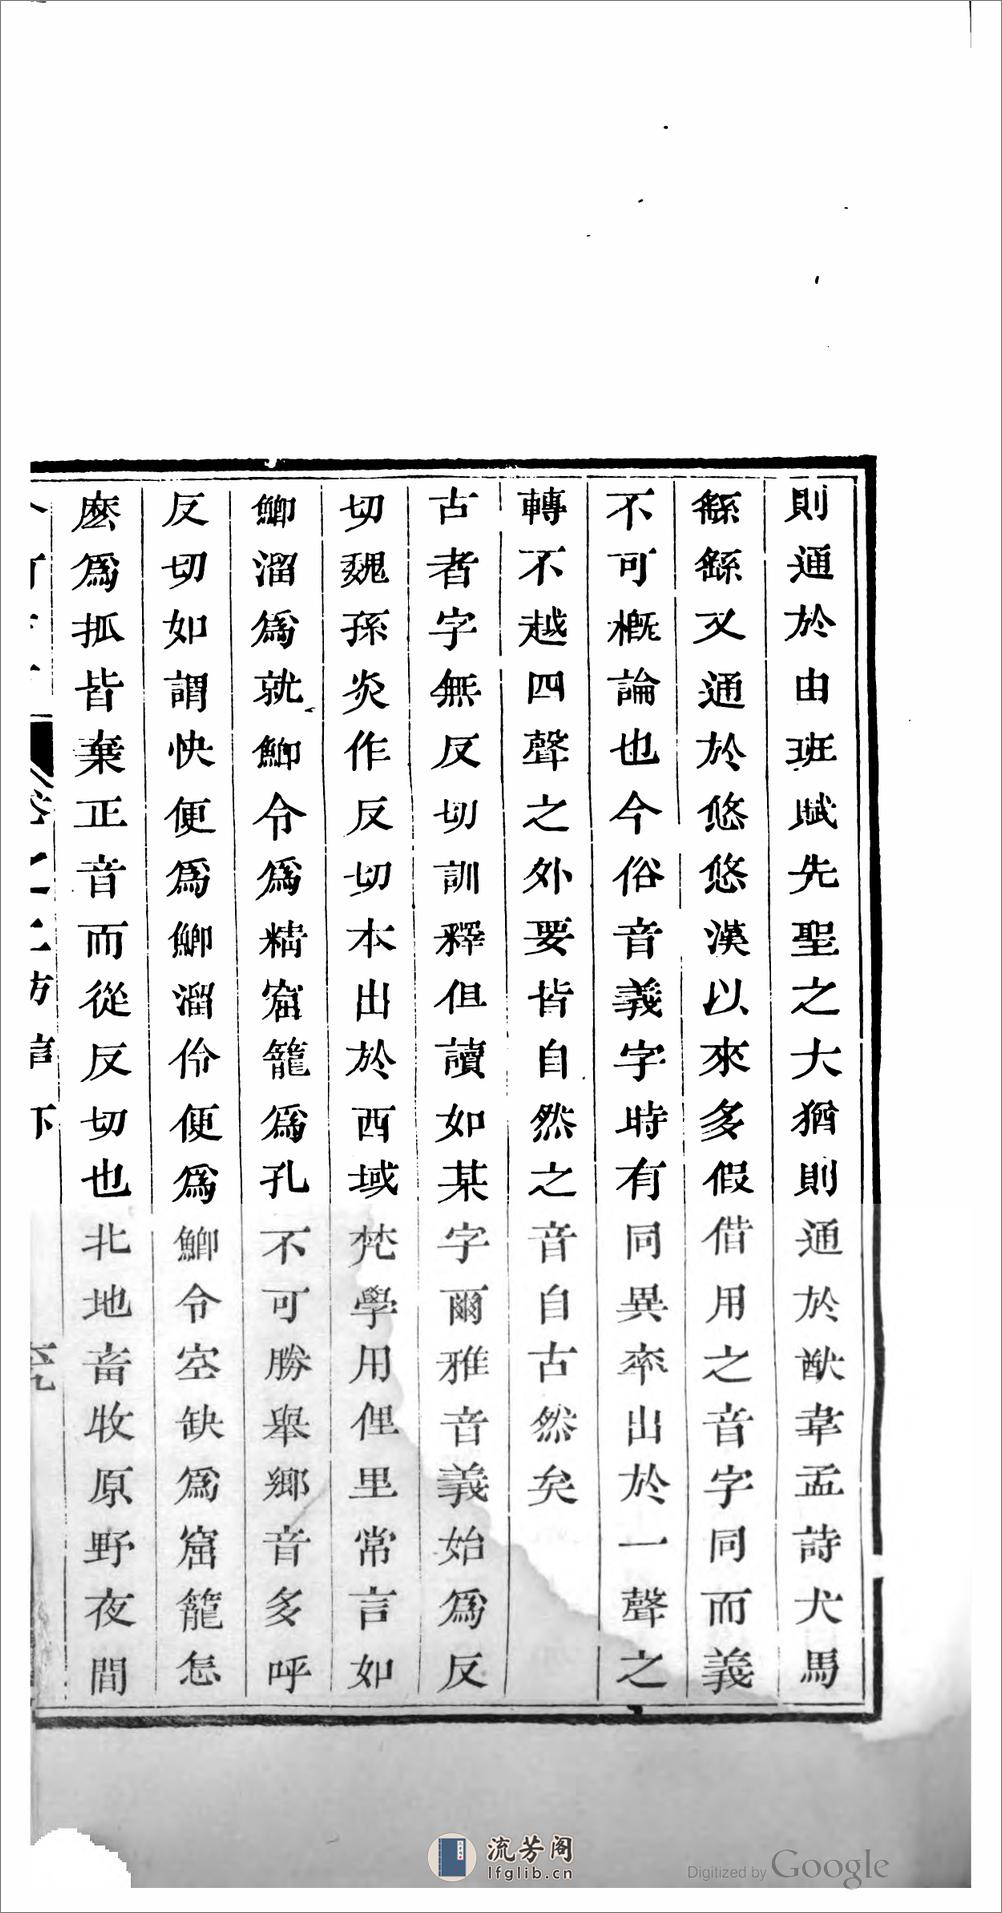 則通於由班賦先聖之大猶則通於猷韋孟詩犬馬
繇繇又通於悠悠漢以來多假借用之音字同而義
不可概論也今俗音義字時有同異率出於一聲之
轉不越四聲之外要皆自然之音自古然矣
古者字無反切訓釋但讀如某字爾雅音義始爲反
切魏孫炎作反切本出於西域梵學用俚里常言如
鯽溜爲就鯽令爲精窟籠爲孔不可勝舉鄉音多呼
反切如謂快便爲鯽溜伶便爲鯽令空缺爲窟籠怎
麽爲抓皆棄正音而從反切也北地畜牧原野夜間
卷之二方言下
流芳阁
lfglib.cn
Digitized by Google